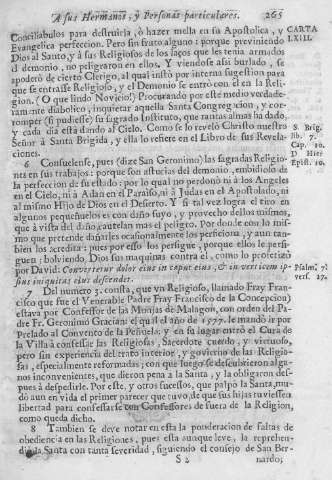 A sus Hermanos, y Personas particulares. 265
Conciliabulos para destruirla, ò hazer mella en su Apostolica, y
CARTA
Evangelica perfeccion. Pero sin fruto alguno: porque previniendo
LXIII.
Dios al Santo, y à sus Religiosos de los laços que les tenia armados
el demonio, no peligraron en ellos. Y viendose assi burlado, se
apoderò de cierto Clerigo, al qual instò por interna sugestion para
que se entrasse Religioso, y el Demonio se entrò con èl en la Reli-
gion. (O que lindo Novicio!) Procurando por este medio verdade-
ramente diabolico, inquietar aquella Santa Congregacion, y cor-
romper (si pudiesse) su sagrado Instituto, que tantas almas ha dado,
y cada dia està dando al Cielo. Como se lo revelò Christo nuestro
S. Brig.
Señor à Santa Brigida, y ella lo refiere en el Libro de sus Revela-
lib. 7.
ciones.
Cap. 20.
6 Consuelense, pues (dize San Geronimo) las sagradas Religio-
D. Hier.
nes en sus trabajos: porque son astucias del demonio, embidioso de
Epist. 10.
la perfeccion de su estado: por lo qual no perdonò ni à los Angeles
en el Cielo, ni à Adan en el Paraiso, ni à Judas en el Apostolado, ni
al mismo Hijo de Dios en el Desierto. Y si tal vez logra el tiro en
algunos pequeñuelos es con daño suyo, y provecho dellos mismos,
que à vista del daño cautelan mas el peligro. Por donde con lo mis-
mo que pretende dañarles ocasionalmente los perficiona, y aun tam-
bien los acredita: pues por esso los persigue, porque ellos le persi-
guen; bolviendo Dios sus maquinas contra el, como lo profetizò
por David: Convertetur dolor eius in caput eius, & in verticem ip-
Psalm. 7.
sius iniquitas eius descendet.
vers. 17.
7 Del numero 5. consta, que vn Religioso, llamado Fray Fran-
cisco que fue el Venerable Padre Fray Francisco de la Concepcion)
estava por Confessor de las Monjas de Malagon, con orden del Pa-
dre Fr. Geronimo Gracian: el qual el año de 1777. le mandò ir por
Prelado al Convento de la Peñuela; y en su lugar entrò el Cura de
la Villa à confessar las Religiosas, Sacerdote cuerdo, y virtuoso,
pero sin experiencia del trato interior, y govierno de las Religio-
sas, especialmente reformadas; con que luego se descubrieron algu-
nos inconvenientes, que dieron pena à la Santa, y la obligaron des-
pues à despedirle. Por este, y otros sucessos, que palpò la Santa, mu-
dò aun en vida el primer parecer que tuvo, de que sus hijas tuviessen
libertad para confessarse con Confessores de fuera de la Religion,
como queda dicho.
8 Tambien se deve notar en esta la ponderacion de faltas de
obediencia en las Religiones, pues esta aunque leve, la reprehen-
diò la Santa con tanta severidad, siguiendo el consejo de San Ber-
S 2 nardo;